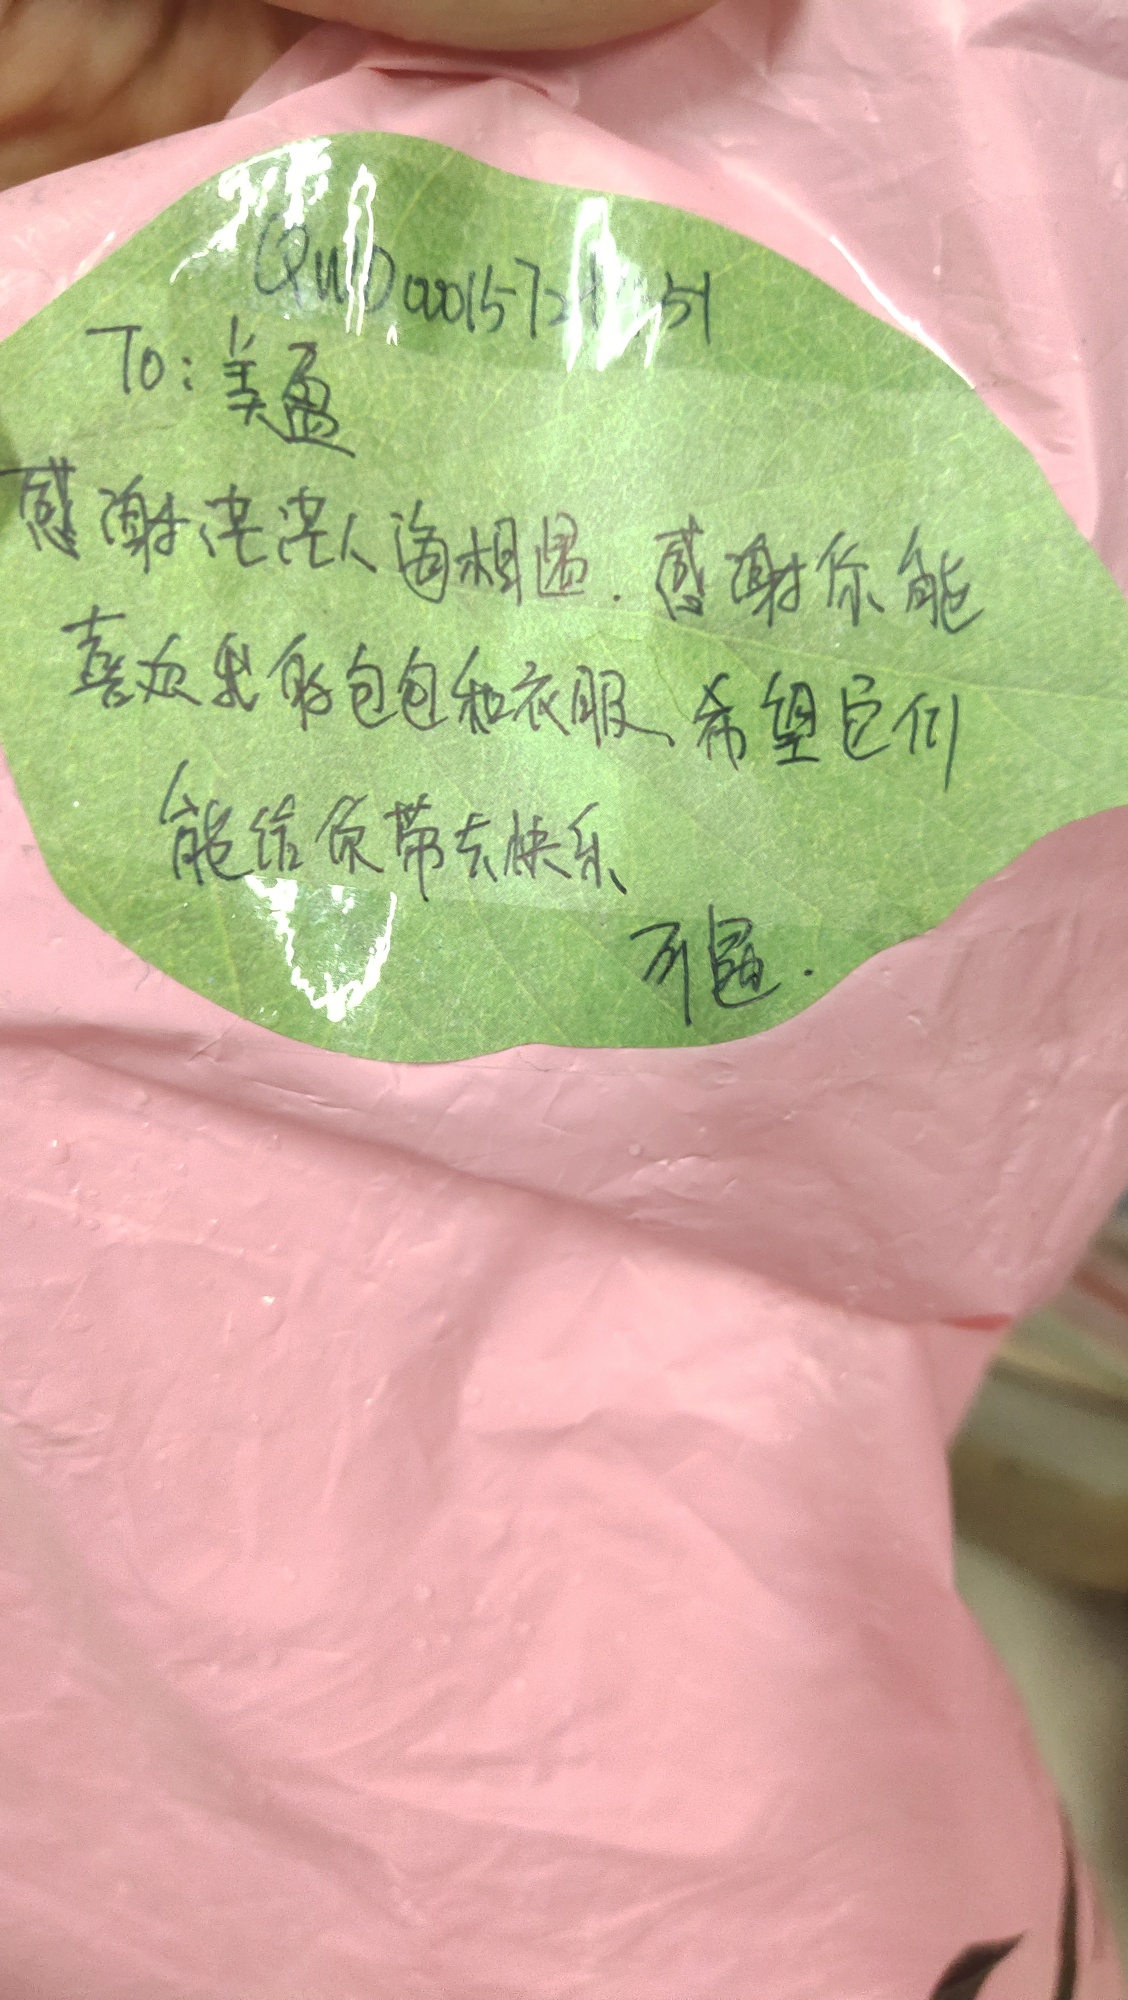 To: 美盈
感谢茫茫人海相遇. 感谢你能
喜欢我的包包和衣服、希望它们
能给你带去快乐、